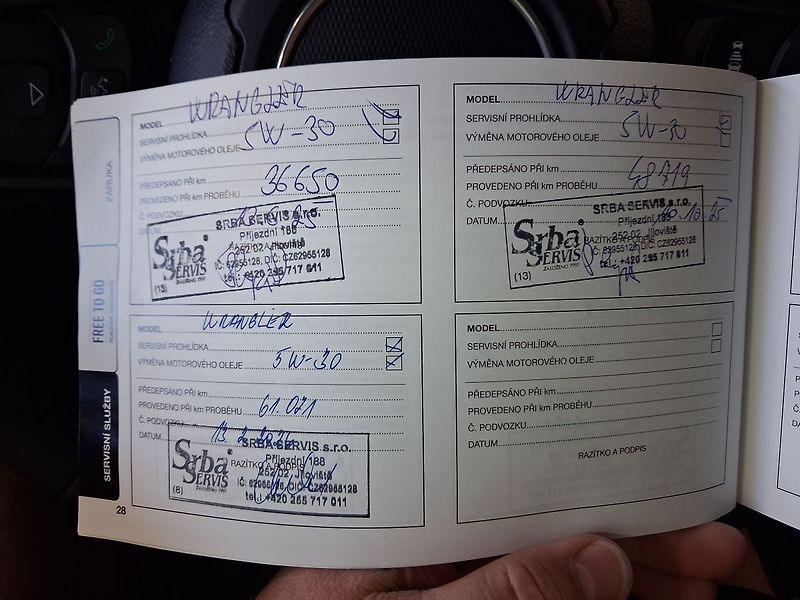 ZÁRUKA
FREE TO GO
SERVISNÍ SLUŽBY
28
MODEL WRANGLER
SERVISNÍ PROHLÍDKA
VÝMĚNA MOTOROVÉHO OLEJE 5W-30
PŘEDEPSÁNO PŘI km
PROVEDENO PŘI km PROBĚHU 36650
Č. PODVOZKU
DATUM
RAZÍTKO A PODPIS
Srba SERVIS
ZALOŽENO 1991
(13)
SRBA SERVIS s.r.o.
Příjezdní 188
252 02 Jíloviště
IČ: 62955128, DIČ: CZ62955128
tel.: +420 255 717 011
MODEL WRANGLER
SERVISNÍ PROHLÍDKA
VÝMĚNA MOTOROVÉHO OLEJE 5W-30
PŘEDEPSÁNO PŘI km
PROVEDENO PŘI km PROBĚHU 48719
Č. PODVOZKU
DATUM 10.25
RAZÍTKO A PODPIS
Srba SERVIS
ZALOŽENO 1991
(13)
SRBA SERVIS s.r.o.
Příjezdní 188
252 02 Jíloviště
IČ: 62955128, DIČ: CZ62955128
tel.: +420 255 717 011
MODEL WRANGLER
SERVISNÍ PROHLÍDKA
VÝMĚNA MOTOROVÉHO OLEJE 5W-30
PŘEDEPSÁNO PŘI km
PROVEDENO PŘI km PROBĚHU 61.071
Č. PODVOZKU
DATUM 13.2.
RAZÍTKO A PODPIS
Srba SERVIS
ZALOŽENO 1991
(6)
SRBA SERVIS s.r.o.
Příjezdní 188
252 02 Jíloviště
IČ: 62955128, DIČ: CZ62955128
tel.: +420 255 717 011
MODEL
SERVISNÍ PROHLÍDKA
VÝMĚNA MOTOROVÉHO OLEJE
PŘEDEPSÁNO PŘI km
PROVEDENO PŘI km PROBĚHU
Č. PODVOZKU
DATUM
RAZÍTKO A PODPIS